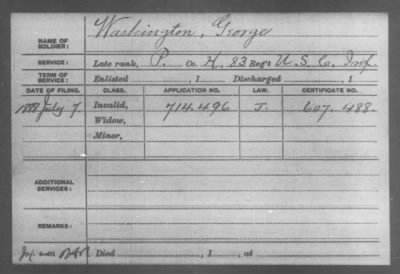 NAME OF SOLDIER: Washington, George
SERVICE: Late rank, P. Co. H, 83 Reg't U. S. C. Inf.
TERM OF SERVICE: Enlisted , 1 Discharged , 1
DATE OF FILING. CLASS. APPLICATION NO. LAW. CERTIFICATE NO.
1888 July 7. Invalid, 714.496 J. 607.488.
Widow,
Minor,
ADDITIONAL SERVICES:
REMARKS:
Died , 1 , at